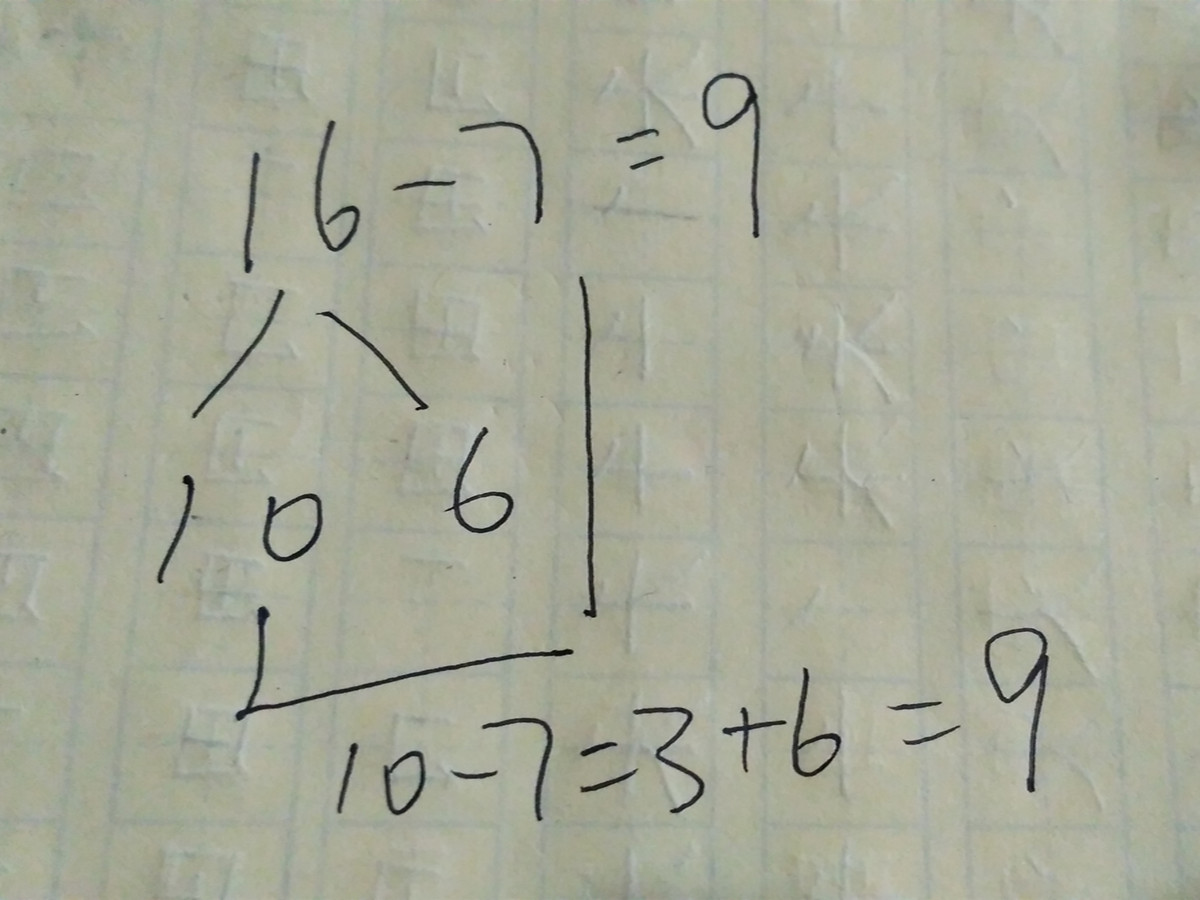 16-7=9
10 6
10-7=3+6=9